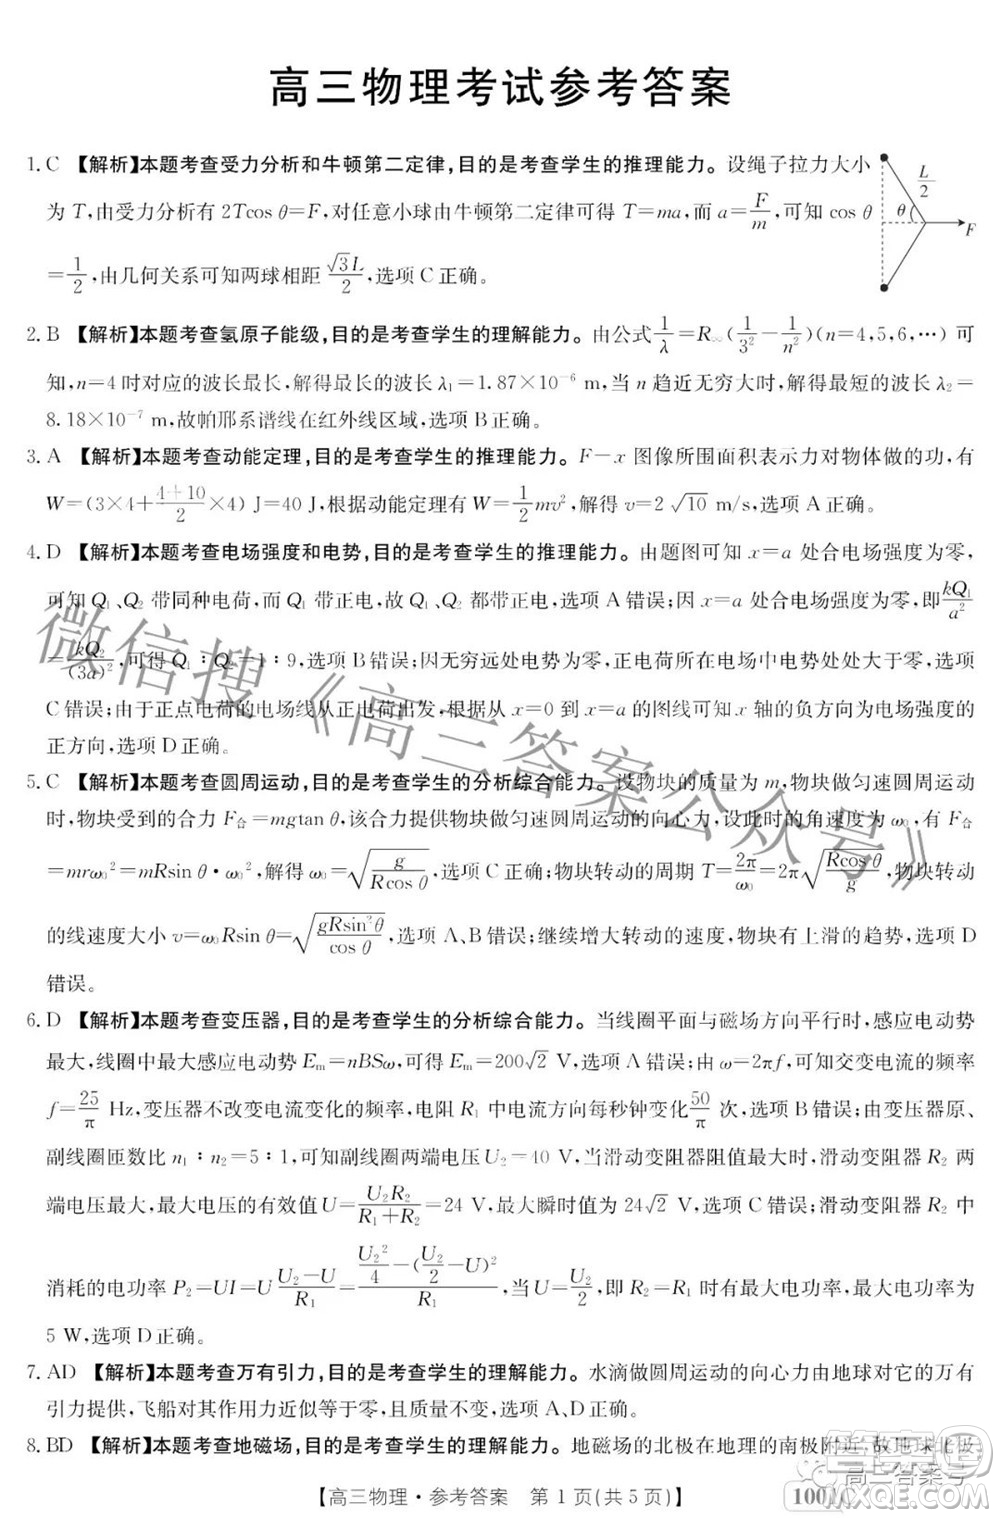 高三物理考试参考答案
1. C 【解析】本题考查受力分析和牛顿第二定律,目的是考查学生的推理能力。设绳子拉力大小
为 T,由受力分析有 2Tcos θ=F,对任意小球由牛顿第二定律可得 T=ma,而 a=F/m,可知 cos θ
=1/2,由几何关系可知两球相距 √3L/2,选项 C 正确。
L/2
θ
F
2. B 【解析】本题考查氢原子能级,目的是考查学生的理解能力。由公式 1/λ=R∞(1/3²-1/n²)(n=4,5,6,…)可
知,n=4 时对应的波长最长,解得最长的波长 λ₁=1.87×10⁻⁶ m,当 n 趋近无穷大时,解得最短的波长 λ₂=
8.18×10⁻⁷ m,故帕邢系谱线在红外线区域,选项 B 正确。
3. A 【解析】本题考查动能定理,目的是考查学生的推理能力。F-x 图像所围面积表示力对物体做的功,有
W=(3×4+(4+10)/2×4) J=40 J,根据动能定理有 W=1/2mv²,解得 v=2√10 m/s,选项 A 正确。
4. D 【解析】本题考查电场强度和电势,目的是考查学生的推理能力。由题图可知 x=a 处合电场强度为零,
可知 Q₁、Q₂ 带同种电荷,而 Q₁ 带正电,故 Q₁、Q₂ 都带正电,选项 A 错误;因 x=a 处合电场强度为零,即 kQ₁/a²
=kQ₂/(3a)²,可得 Q₁∶Q₂=1∶9,选项 B 错误;因无穷远处电势为零,正电荷周围的电场中电势处处大于零,选项
C 错误;由于正点电荷的电场线从正电荷出发,根据从 x=0 到 x=a 的图线可知 x 轴的负方向为电场强度的
正方向,选项 D 正确。
5. C 【解析】本题考查圆周运动,目的是考查学生的分析综合能力。设物块的质量为 m,物块做匀速圆周运动
时,物块受到的合力 F合=mgtan θ,该合力提供物块做匀速圆周运动的向心力,设此时的角速度为 ω₀,有 F合
=mrω₀²=mRsin θ·ω₀²,解得 ω₀=√(g/(Rcos θ));物块转动的周期 T=2π/ω₀=2π√(Rcos θ/g),物块转动
的线速度大小 v=ω₀Rsin θ=√(gRsin²θ/cos θ),选项 A、B 错误;继续增大转动的速度,物块有上滑的趋势,选项 D
错误。
6. D 【解析】本题考查变压器,目的是考查学生的分析综合能力。当线圈平面与磁场方向平行时,感应电动势
最大,线圈中最大感应电动势 Eₘ=nBSω,可得 Eₘ=200√2 V,选项 A 错误;由 ω=2πf,可知交变电流的频率
f=25/π Hz,变压器不改变电流变化的频率,电阻 R₁ 中电流方向每秒钟变化 50/π 次,选项 B 错误;由变压器原、
副线圈匝数比 n₁∶n₂=5∶1,可知副线圈两端电压 U₂=40 V,当滑动变阻器阻值最大时,滑动变阻器 R₂ 两
端电压最大,最大电压的有效值 U=U₂R₂/(R₁+R₂)=24 V,最大瞬时值为 24√2 V,选项 C 错误;滑动变阻器 R₂ 中
消耗的电功率 P₂=UI=U(U₂-U)/R₁=(U₂²/4-(U₂/2-U)²)/R₁,当 U=U₂/2,即 R₂=R₁ 时最大电功率,最大电功率为
5 W,选项 D 正确。
7. AD 【解析】本题考查万有引力,目的是考查学生的理解能力。水滴做圆周运动的向心力由地球对它的万有
引力提供,飞船对其作用力近似为零,选项 B、C 错误;飞船速度大小不变,选项 A、D 正确。
8. BD 【解析】本题考查地磁场,目的是考查学生的理解能力。地磁场的北极在地理的南极附近,故地球北极
【高三物理·参考答案 第 1 页(共 5 页)】
微信搜《高三答案公众号》
高三答案号